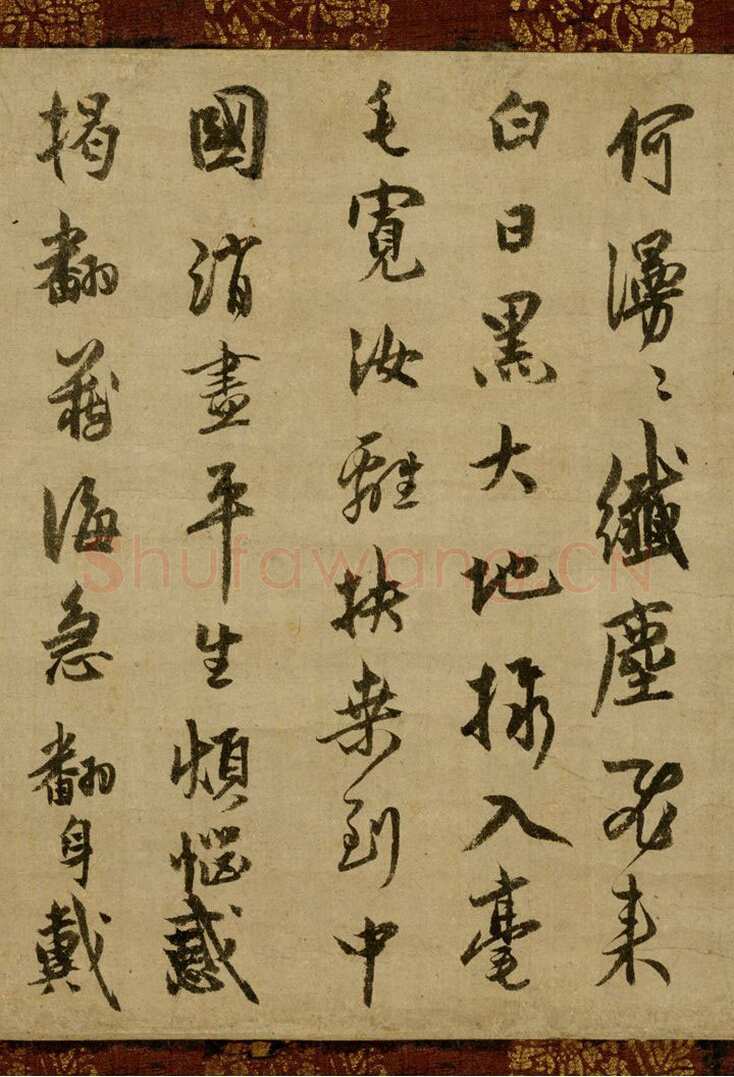 何漫〻纖塵飛来
白日黑大地掾入毫
毛寬汝離扶桒到中
國消盡平生煩惱惑
揭翻藏海急翻身戴
Shufawang.CN